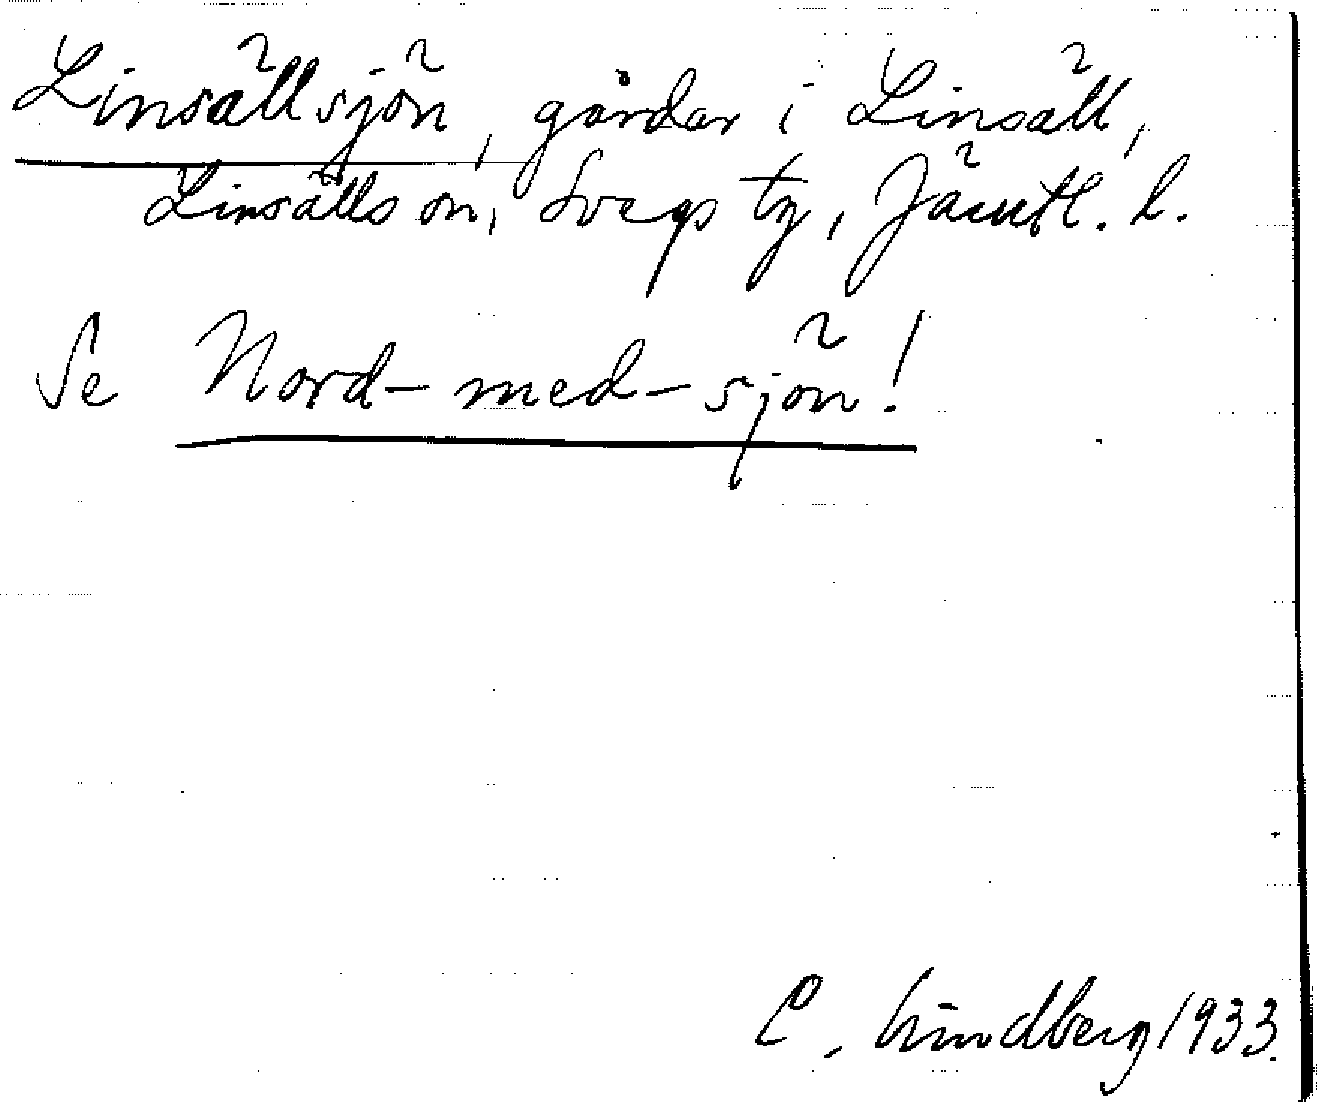 Linsällsjön, gårdar i Linsäll,
Linsälls sn, Svegs tg, Jämtl. l.
Se Nord-med-sjön!
C. Lindberg 1933.